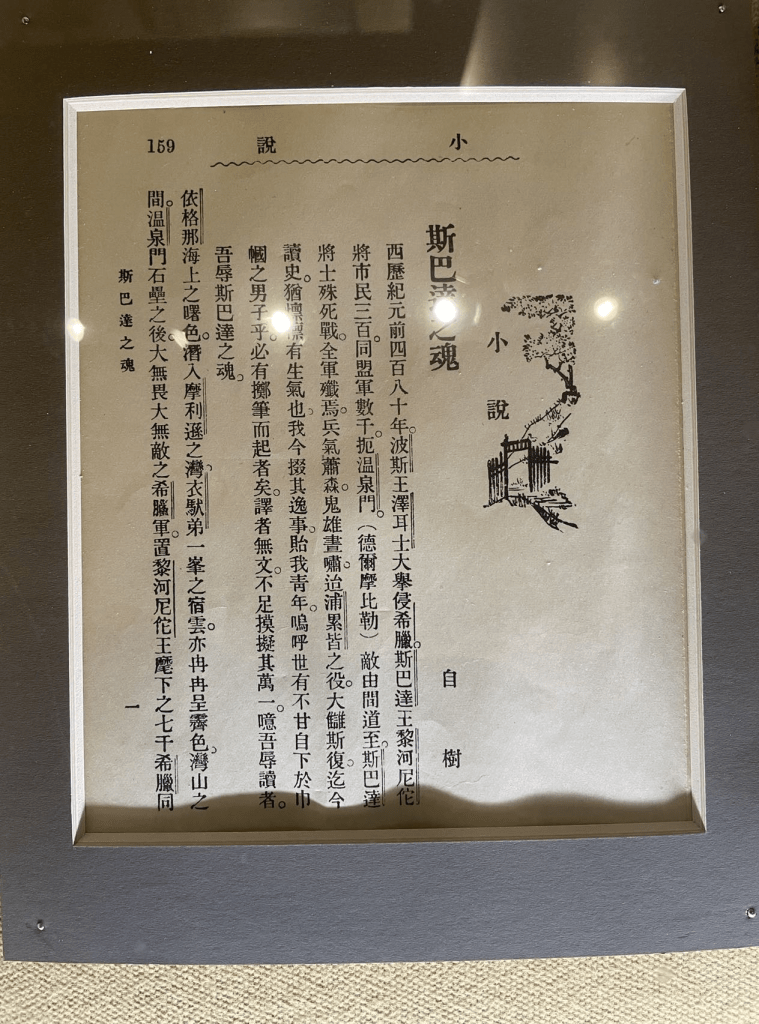 小說
159
小說
斯巴達之魂
自樹
西歷紀元前四百八十年。波斯王澤耳士大舉侵希臘。斯巴達王黎河尼佗
將市民三百。同盟軍數千。扼溫泉門。（德爾摩比勒）敵由間道至。斯巴達
將士殊死戰。全軍殲焉。兵氣蕭森。鬼雄晝嘯。迨浦累皆之役。大讎斯復。迄今
讀史。猶懍懍有生氣也。我今掇其逸事。貽我青年。嗚呼世有不甘自下於巾
幗之男子乎。必有擲筆而起者矣。譯者無文。不足摸擬其萬一。噫吾辱讀者。
吾辱斯巴達之魂。
依格那海上之曙色。潛入摩利遜之灣。衣馱弟一峯之宿雲。亦冉冉呈霽色。灣山之
間。溫泉門石壘之後。大無畏大無敵之希臘軍。置黎河尼佗王麾下之七千希臘同
斯巴達之魂
一